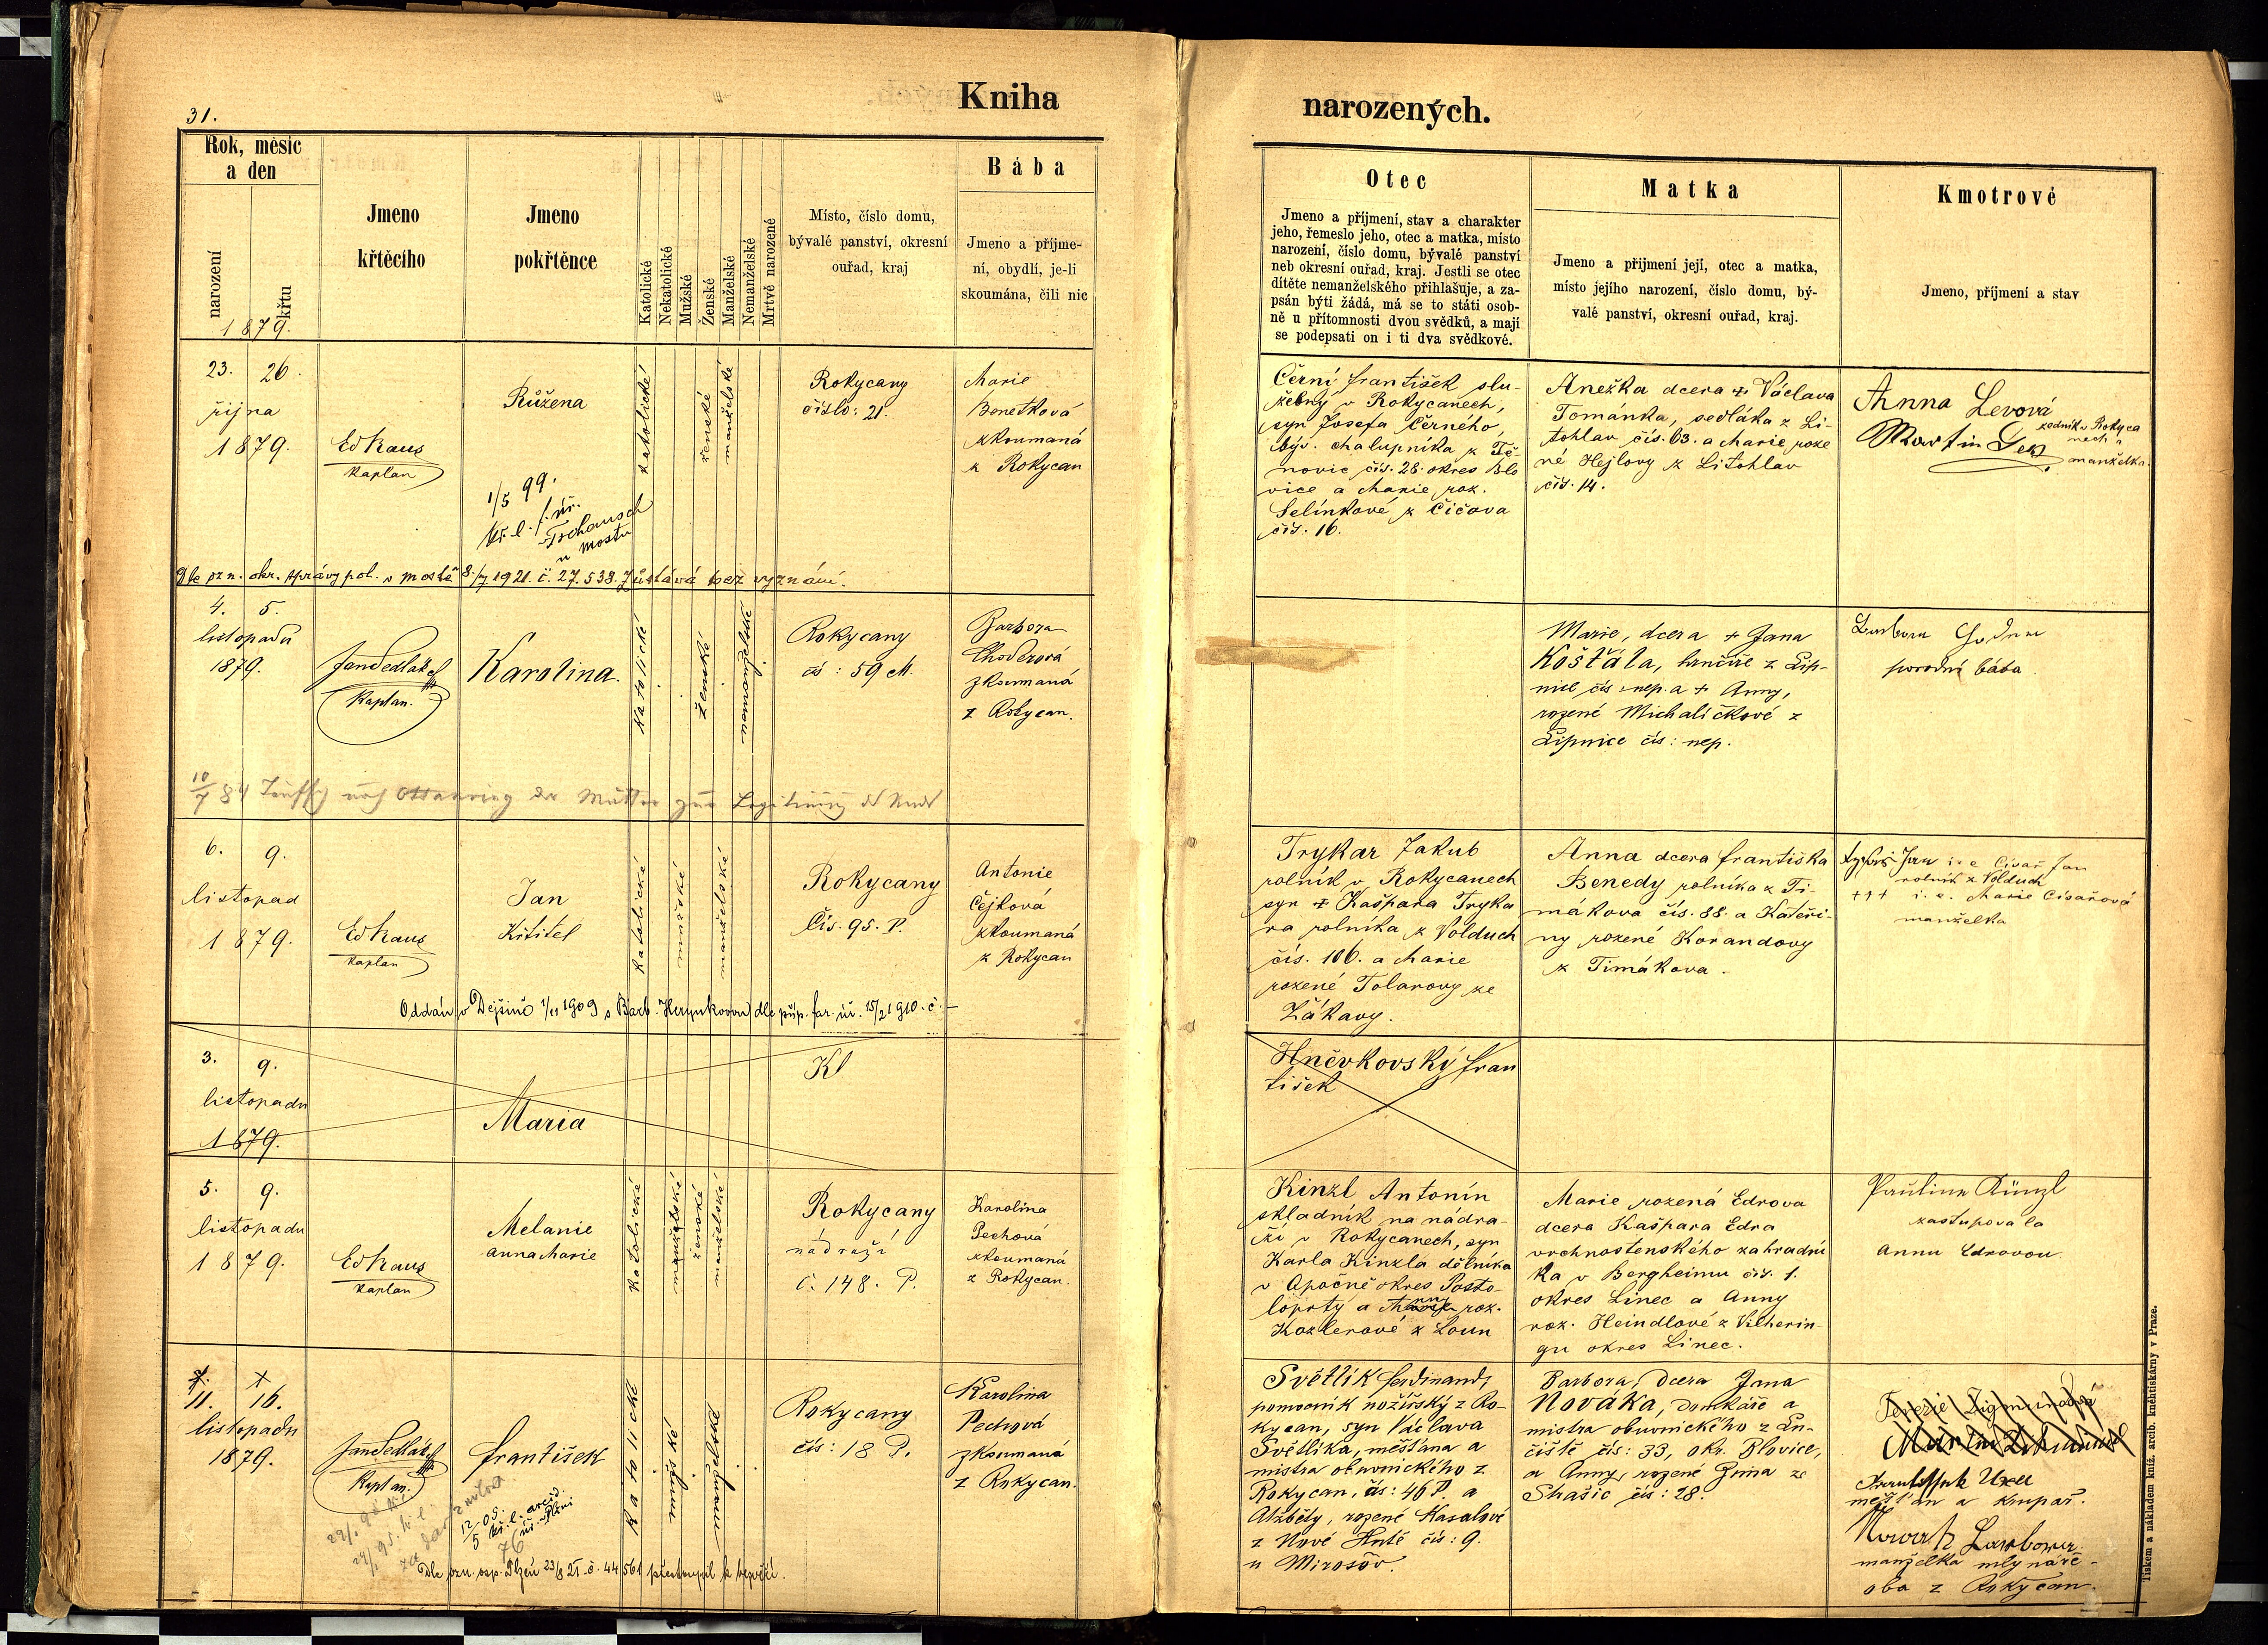 31.
Kniha
narozených.
Rok, měsíc
a den
narození
křtu
1879.
Jmeno
křtěcího
Jmeno
pokřtěnce
Katolické
Nekatolické
Mužské
Ženské
Manželské
Nemanželské
Mrtvě narozené
Místo, číslo domu,
bývalé panství, okresní
ouřad, kraj
Bába
Jmeno a příjme-
ní, obydlí, je-li
skoumána, čili nic
Otec
Jmeno a příjmení, stav a charakter
jeho, řemeslo jeho, otec a matka, místo
narození, číslo domu, bývalé panství
neb okresní ouřad, kraj. Jestli se otec
dítěte nemanželského přihlašuje, a za-
psán býti žádá, má se to státi osob-
ně u přítomnosti dvou svědků, a mají
se podepsati on i ti dva svědkové.
Matka
Jmeno a přijmení její, otec a matka,
místo jejího narození, číslo domu, bý-
valé panství, okresní ouřad, kraj.
Kmotrové
Jmeno, příjmení a stav
23. 26.
října
1879.
Ed Kaus
kaplan
Růžena
1/5 99.
Kř. l. f. úř.
Tschausch
u Mostu
katolické
ženské
manželské
Rokycany
číslo: 21.
Marie
Benetková
zkoumaná
z Rokycan
Černí František slu-
žebný v Rokycanech,
syn Josefa Černého,
býv. chalupníka z Tě-
novic čís. 28. okres Blo
vice a Marie roz.
Selínkové z Čičova
čís. 16.
Anežka dcera + Václava
Tomanka, sedláka z Li-
tohlav čís. 63. a Marie roze
né Hejlovy z Litohlav
čís. 14.
Anna Levová
Martin Lev
rodník v Rokyca
nech a
manželka.
Dle ozn. okr. správy pol. v Mostě 8./7 1921. č. 27.538. zůstává bez vyznání.
4. 5.
listopadu
1879.
Jan Sedláček
Kaplan.
Karolina.
Katolické
ženské
nemanželské
Rokycany
čís: 59 M.
Barbora
Choderová
zkoumaná
z Rokycan.
Marie, dcera + Jana
Košťála, hrnčíře z Lip-
nice čís: nep. a + Anny,
rozené Michaličkové z
Lipnice čís: nep.
Barbora
porodní bába.
10/7 84 nach Ottakring der Mutter zur
6. 9.
listopad
1879.
Ed Kaus
kaplan
Jan
Křtitel
Katolické
mužské
manželské
Rokycany
Čís. 95. P.
Antonie
Čejková
zkoumaná
z Rokycan
Trykar Jakub
rolník v Rokycanech
syn + Kašpara Tryka
ra rolníka z Volduch
čís. 106. a Marie
rozené Tolarovy ze
Žákavy.
Anna dcera Františka
Benedy rolníka z Ti-
mákova čís. 88. a Kateři-
ny rozené Korandovy
z Timákova.
Jan i. e. Císař Jan
rolník z Volduch
+++ i. e. Marie Císařová
manželka
Oddán v Dejšině 1/11 1909 s Barb. Hrynkovou dle příp. far. úř. 15/2 1910. č. –
3. 9.
listopadu
1879.
Maria
Kl
Hněvkovský Fran
tišek
5. 9.
listopadu
1879.
Ed Kaus
kaplan
Melanie
Anna Marie
Katolické
manželské
ženské
manželské
Rokycany
nádraží
č. 148. P.
Karolina
Pechová
zkoumaná
z Rokycan.
Kinzl Antonín
skladník na nádra-
ží v Rokycanech, syn
Karla Kinzla dělníka
v Opočně okres Posto-
loprty a Anny roz.
Kozlerové z Loun
Marie rozená Edrova
dcera Kašpara Edra
vrchnostenského zahradní
ka v Bergheimu čís. 1.
okres Linec a Anny
roz. Heindlové z Vilherin-
gu okres Linec.
Paulina Künzl
zastupovala
Annu Edrovou.
11. 16.
listopadu
1879.
Jan Sedláček
Kaplan.
František
12/5 05. kř. l. arcid.
úř. v Plzni
76
Katolické
mužské
manželské
Rokycany
čís: 18 P.
Karolina
Pechová
zkoumaná
z Rokycan.
Světlík Ferdinand,
pomocník nožířský z Ro-
kycan, syn Václava
Světlíka, měšťana a
mistra obuvnického z
Rokycan, čís: 46 P. a
Alžběty, rozené Kasalové
z Nové Hutě čís: 9.
u Mirošov.
Barbora, dcera Jana
Nováka, domkáře a
mistra obuvnického z Lu-
čiště čís: 33, okr. Blovice,
a Anny, rozené Zima ze
Skašic čís: 28.
měšťan a krupař.
manželka mlynáře -
oba z Rokycan.
Dle ozn. osp. Plzeň 23/8 21. č. 44561 přestoupil k bezvěří.
Tiskem a nákladem kníž. arcib. knihtiskárny v Praze.